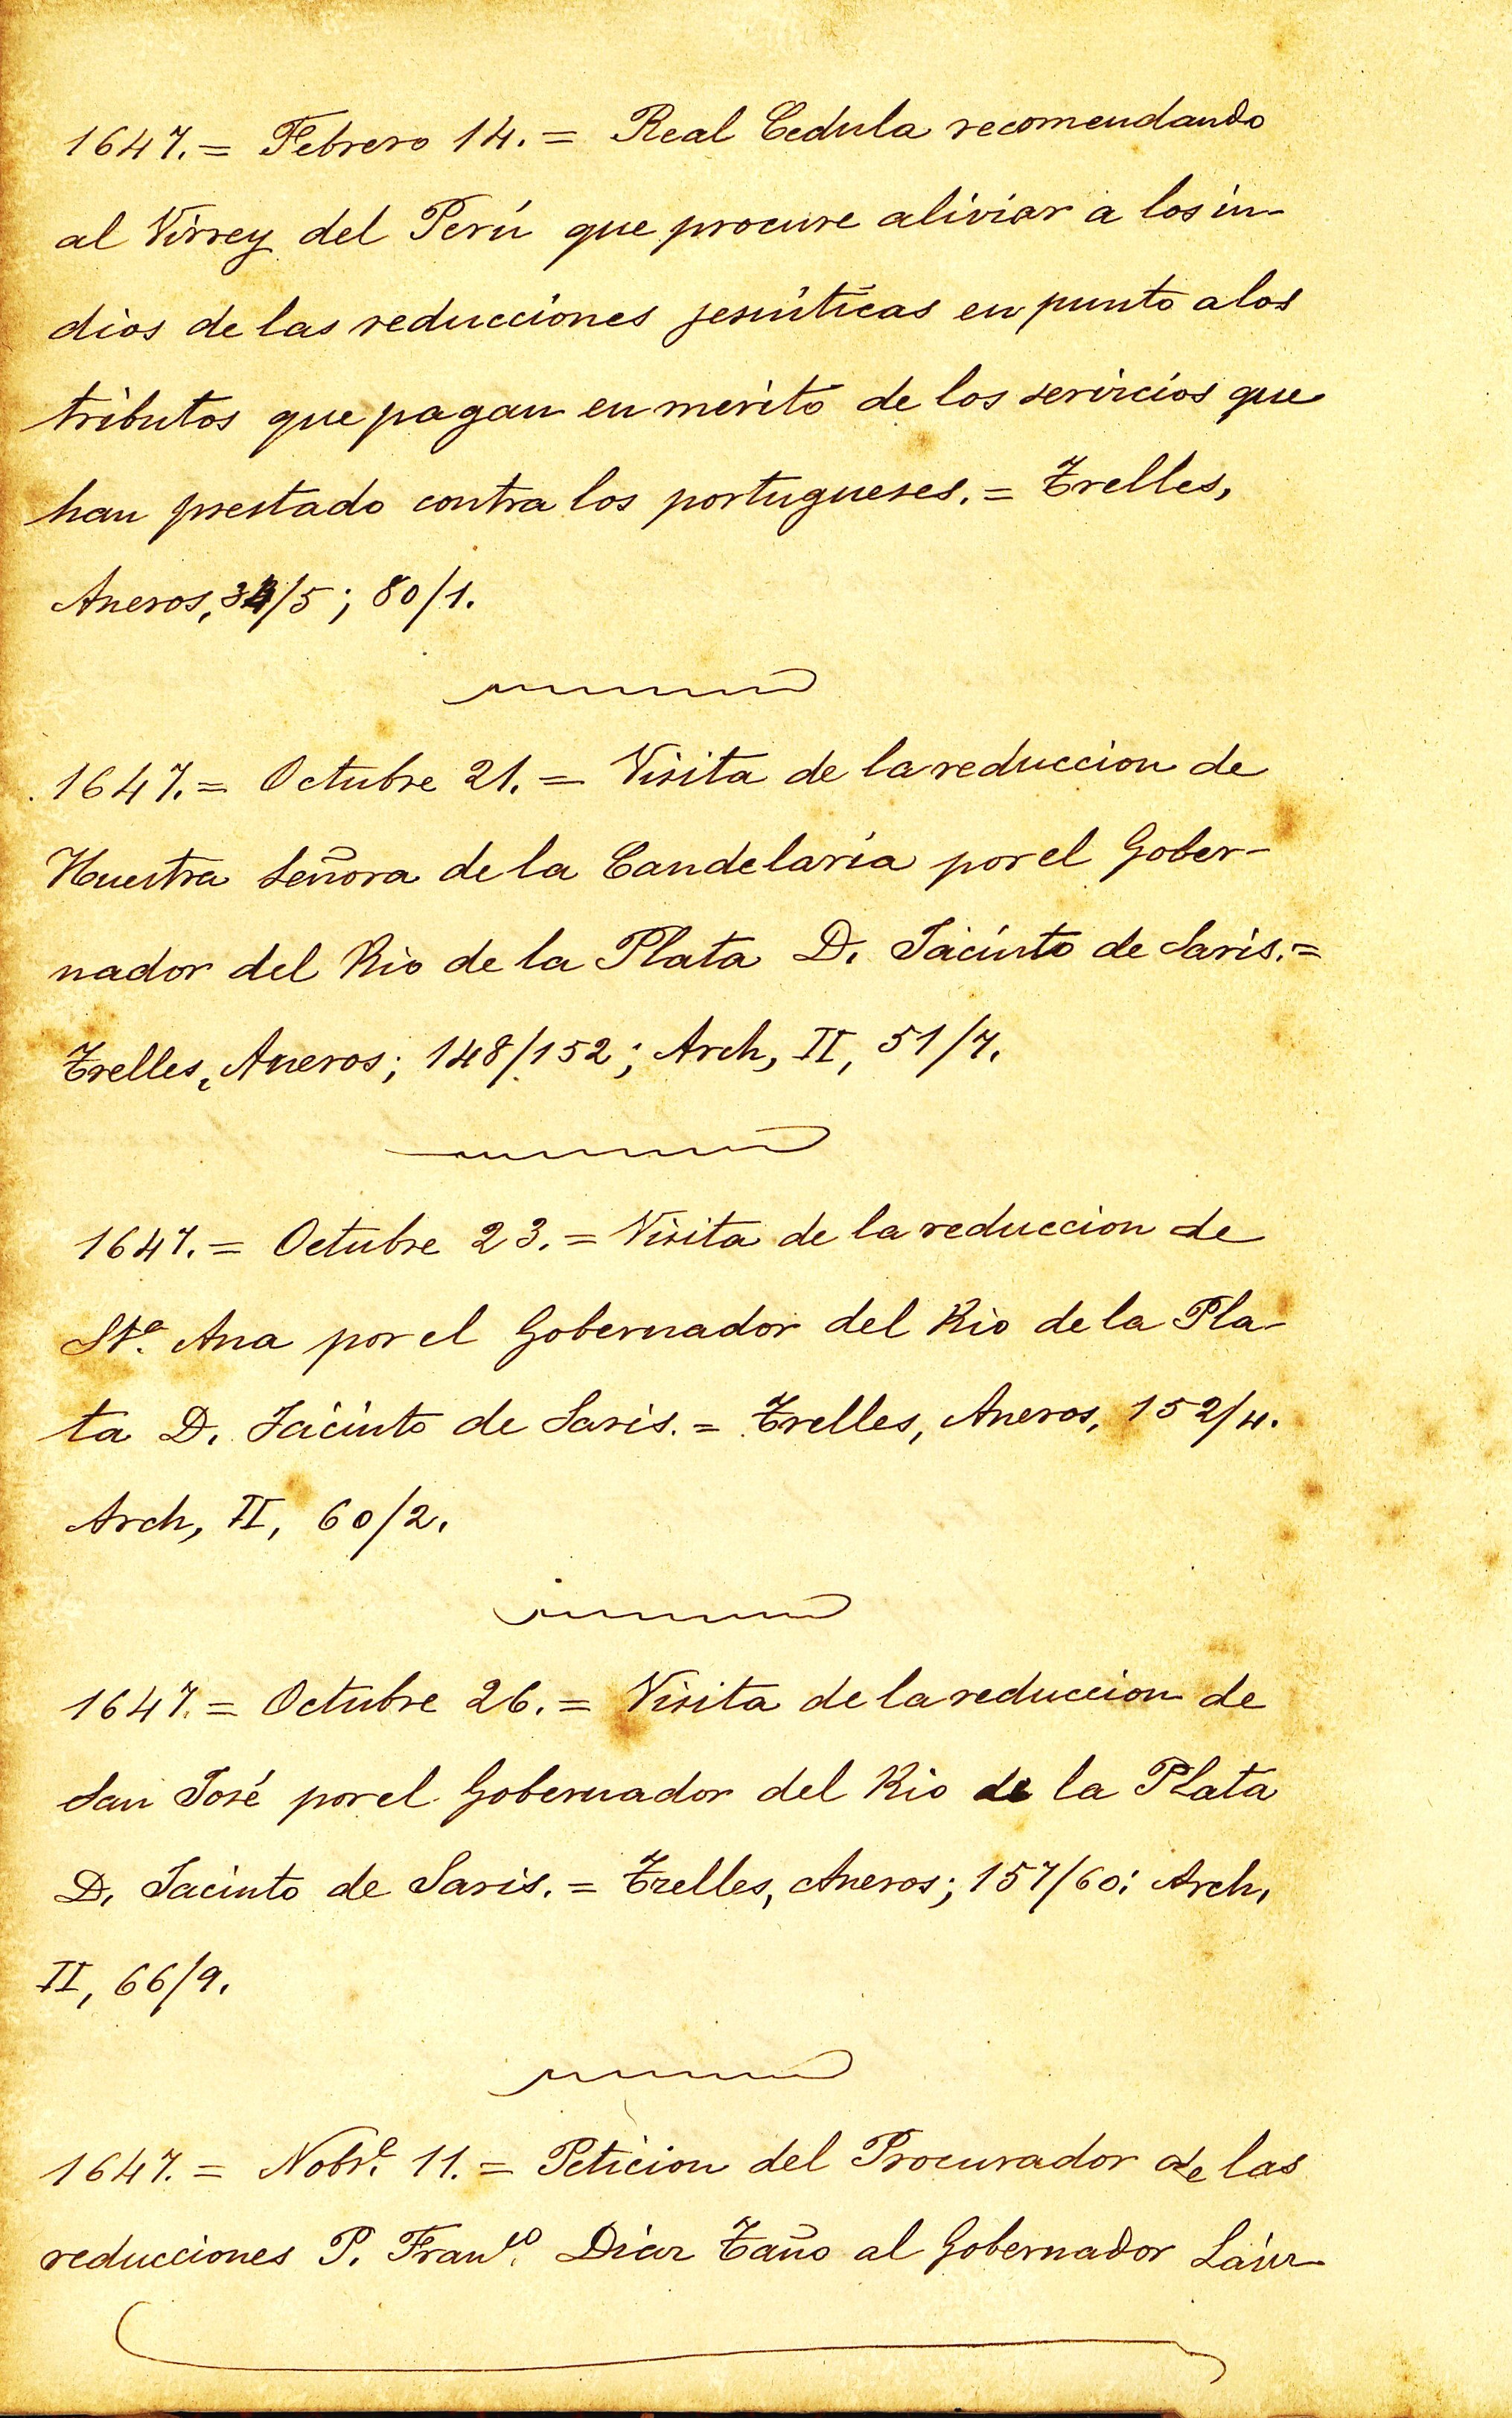 1647.= Febrero 14.= Real Cedula recomendando
al Virrey del Perú que procure aliviar a los in-
dios de las reducciones jesuíticas en punto a los
tributos que pagan en mérito de los servicios que
han prestado contra los portugueses.= Trelles,
Anexos, /5; 80/1.
1647.= Octubre 21.= Visita de la reduccion de
Nuestra Señora de la Candelaria por el Gober-
nador del Rio de la Plata D. Jacinto de Laris.=
Trelles, Anexos; 148/152; Arch, II, 51/7.
1647.= Octubre 23.= Visita de la reduccion de
Sta. Ana por el Gobernador del Rio de la Pla-
ta D. Jacinto de Laris.= Trelles, Anexos, 152/4.
Arch, II, 60/2.
1647.= Octubre 26.= Visita de la reduccion de
San José por el Gobernador del Rio de la Plata
D. Jacinto de Laris.= Trelles, Anexos; 157/60: Arch,
II, 66/9.
1647.= Nobre. 11.= Peticion del Procurador de las
reducciones P. Franco. Diaz Taño al Gobernador